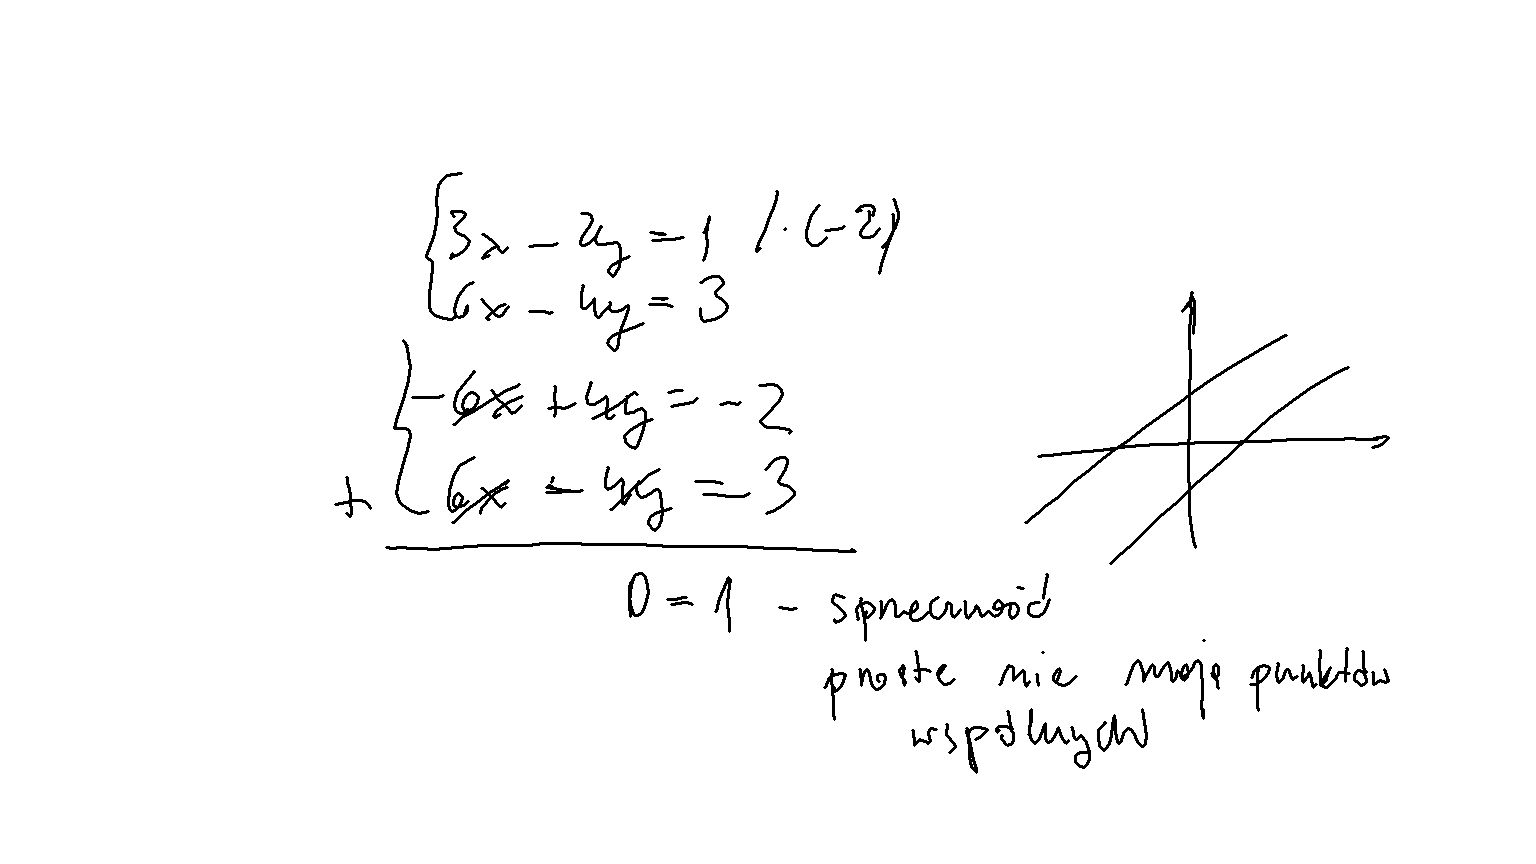 3x - 2y = 1 / · (-2)
6x - 4y = 3
-6x + 4y = -2
+ 6x - 4y = 3
0 = 1 - sprzeczność
proste nie mają punktów
wspólnych